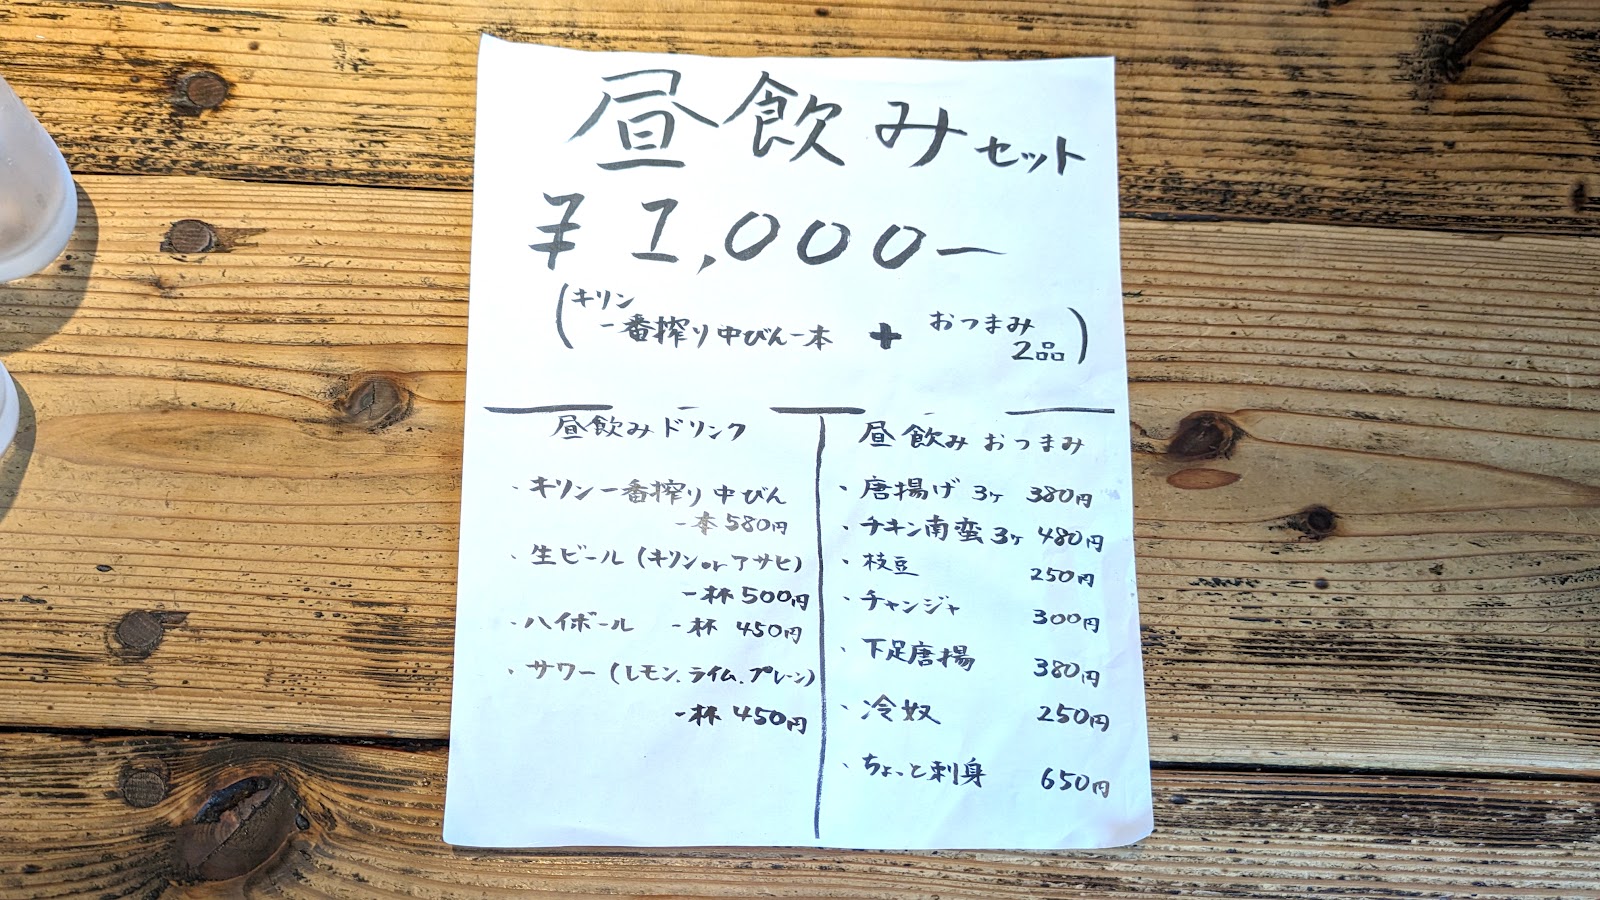 昼飲みセット
¥1,000ー
(キリン
一番搾り中びん一本 + おつまみ
2品)
昼飲みドリンク
・キリン一番搾り中びん
一本 580円
・生ビール(キリンorアサヒ)
一杯 500円
・ハイボール 一杯 450円
・サワー(レモン、ライム、プレーン)
一杯 450円
昼飲みおつまみ
・唐揚げ 3ヶ 380円
・チキン南蛮 3ヶ 480円
・枝豆 250円
・チャンジャ 300円
・下足唐揚 380円
・冷奴 250円
・ちょっと刺身 650円